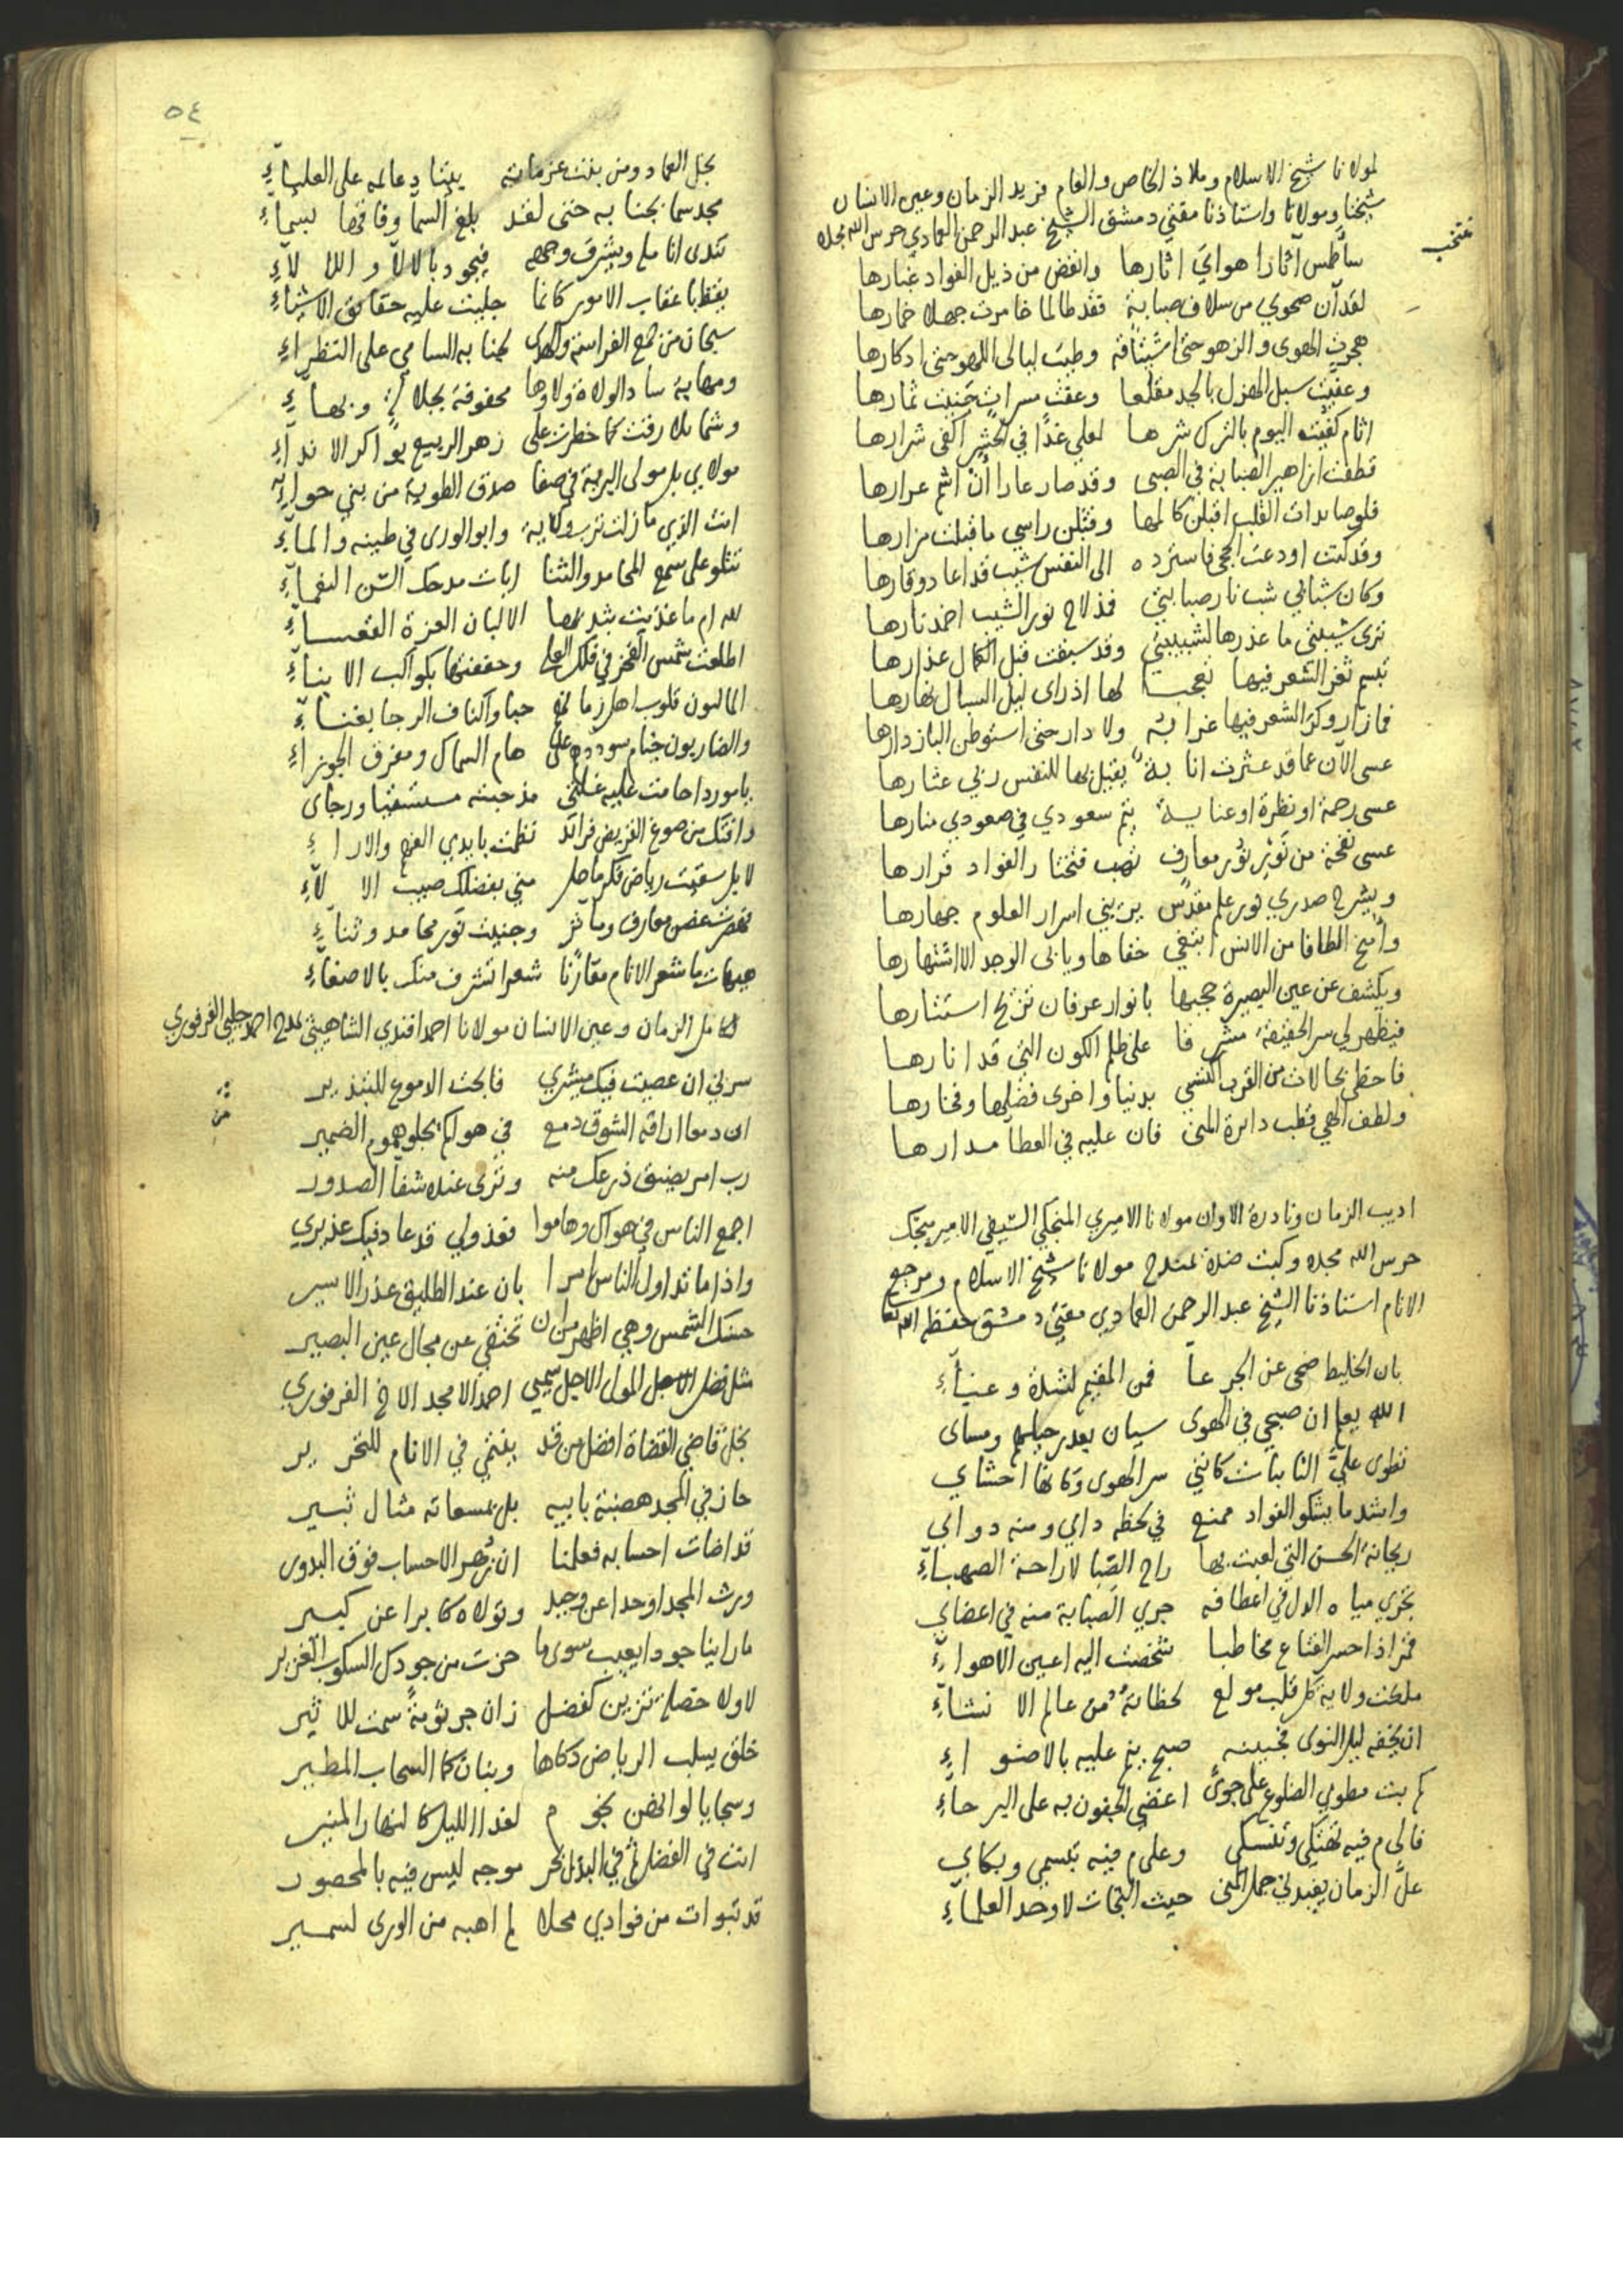 لمولانا شيخ الاسلام وملاذ الخاص والعام فريد الزمان وعين الانسان
شيخنا ومولانا واستاذنا مفتي دمشق الشيخ عبد الرحمن العمادي حرس الله مجده
منتخب
ساطمس آثارا هواي اثارها وانفض من ذيل الفواد غبارها
لقد آن صحوي من سلاف صبابة فقد طالما خامرت جهلا خمارها
هجرت الهوى والزهو حتى اشتياقه وطبت ليالى اللهو حتى ادكارها
وعفيت سبل الهزل بالجد مقلعا وعفت مسرات جنيت ثمارها
اثام كفيت اليوم بالترك شرها لعلي غدا في الحشر اكفى شرارها
قطفت ازاهير الصبابة في الصبى وقد صار عارا ان اشم عرارها
فلو صايدات القلب اقبلن كالمها وقبلن راسي ما قبلت مزارها
وقد كنت اودعت الحجى فاسترده الى النفس شيب قد اعاد وقارها
وكان شبابي شب نار صبابتي فذ لاح نور الشيب اخمد نارها
ترى شيبتي ما عذرها لشبيبتي وقد سبقت قبل اكتمال عذارها
تبسم ثغر الشعر فيها تعجبا لها اذ راى ليل السبال نهارها
فما زار وكر الشعر فيها غرابه ولا دار حتى استوطن الباز دارها
عسى الآن عما قد عثرت انابة يقيل بها للنفس ربي عثارها
عسى رحمة او نظرة او عناية يتم سعودي في صعودي منارها
عسى نفحة من نور معارف تهب فتختار الفواد قرارها
ويشرح صدري نور علم مقدس يريني اسرار العلوم جهارها
وامنح الطافا من الانس ابتغي خفاها ويابى الوجد الا اشتهارها
ويكشف عن عين البصيرة حجبها بانوار عرفان تزيح استتارها
فيظهر لي سر الحقيقة مشرفا على ظلم الكون التي قد انارها
فاحظى بحالات من القرب اكتسي بدنيا واخرى فضلها وفخارها
ولطف الهي قطب دائرة المنى فان عليه في العطا مدارها
اديب الزمان ونادرة الاوان مولانا الاميري المنجكي السيفي الامير منجك
حرس الله مجده وكبت ضده يمتدح مولانا شيخ الاسلام ومرجع
الانام استاذنا الشيخ عبد الرحمن العمادي مفتي دمشق حفظه الله تعالى
بان الخليط ضحى عن الجرعا فمن المقيم لشدة وعناء
الله يعلم ان صبحي في الهوى سيان بعد رحيلهم ومساى
تطوى علي النائبات كانني سر الهوى وكانها احشاي
واشد ما يشكو الفواد ممنع في لحظه دائي ومنه دوائي
ريحانة الحسن التي لعبت بها راح الصبا لا راحة الصهباء
تجري مياه الدل في اعطافه جري الصبابة منه في اعضاي
قمر اذا حسر القناع مخاطبا شخصت اليه اعين الاهواء
ملكت ولاية كل قلب مولع لحظاته من عالم الانشاء
ان يخفه ليل النوى فجبينه صبح ينم عليه بالاضواء
كم بت مطوي الضلوع على جوى اغضي الجفون به على البرحاء
فالى م فيه تهتكي وتنسكي وعلى م فيه تبسمي وبكاي
عل الزمان يفيدني جمل المنى حيث التجات لاوحد العلماء
٥٤
نجل العماد ومن بنت عزماته بيتا دعائمه على العلياء
مجد سما بجنابه حتى لقد بلغ السما وفاقها بسماء
تندى انامله ويشرق وجهه فيجود بالالاء والالاء
يقظ باعقاب الامور كانما جليت عليه حقائق الاشياء
سبحان من جمع الفراسة والهدى لجنابه السامي على النظراء
ومهابة ساد الولاة ولاوها محفوفة بجلالة وبهاء
وشمائلا رقت كما خطرت على زهر الربيع بواكر الانداء
مولاي بل مولى البرية في صفا صدق الطوية من بني حواء
انت الذي ما زلت ترب ولاية وابو الورى في طينه والماء
تتلو على سمع المحامد والثنا ايات مدحك السن النعماء
لله ام ما غذيت بثديها الا لبان العزة القعساء
اطلعت شمس الفخر في فلك العلى وحففتها بكواكب الابناء
المالئون قلوب اهل زمانهم حبا واكناف الرجا بغناء
والضاربون خيام سوددهم على هام السماك ومفرق الجوزاء
يا موردا حامت عليه غلتي مذ جئته مستشفيا ورجاى
وافتك من صوغ القريض فرائد نظمت بايدي الفهم والاراء
لا بل سقيت رياض فكر ماحل مني بفضلك صيب الالاء
فهصرت غصن معارف ومآثر وجنيت نور محامد وثناء
هيهات ما شعر الانام مقارنا شعرا تشرف منك بالاصغاء
لكامل الزمان وعين الانسان مولانا احمد افندي الشاهيني يمدح احمد چلبي الفرفوري
سرني ان عصيت فيك مشيري فابحت الدموع للتبذير
ان دمعا اراقه الشوق دمع في هواكم يجلو هموم الضمير
رب امر يضيق ذرعك منه وترى عنده شفا الصدور
اجمع الناس في هواك وهاموا فعذولي قد عاد فيك عذيري
واذا ما تداول الناس امرا بان عند الطليق عذر الاسير
حسنك الشمس وهي اظهر من ان تختفي عن مجال عين البصير
مثل فضل المولى الاجل سميي احمد الامجد الاخ الفرفوري
نجل قاضي القضاة افضل من قد ينتمي في الانام للنحرير
حاز في المجد هضبة بابيه بل بمسعاته مثال ثبير
قد اضات احسابه فعلمنا ان زهر الاحساب فوق البدور
ورث المجد اوحدا عن وحيد وتولاه كابرا عن كبير
ما راينا جودا يعيب سوى ما حزت من جودك السكوب الغزير
لاولا خصلة تزين كفضل زان جرثومة سمت للاثير
خلق يسلب الرياض ذكاها وبنان كالسحاب المطير
وسجايا لو انهن نجوم لغدا الليل كالنهار المنير
انت في الفضل ثم في البذل بحر موجه ليس فيه بالمحصور
قد تبوات من فوادي محلا لم اهبه من الورى لسمير